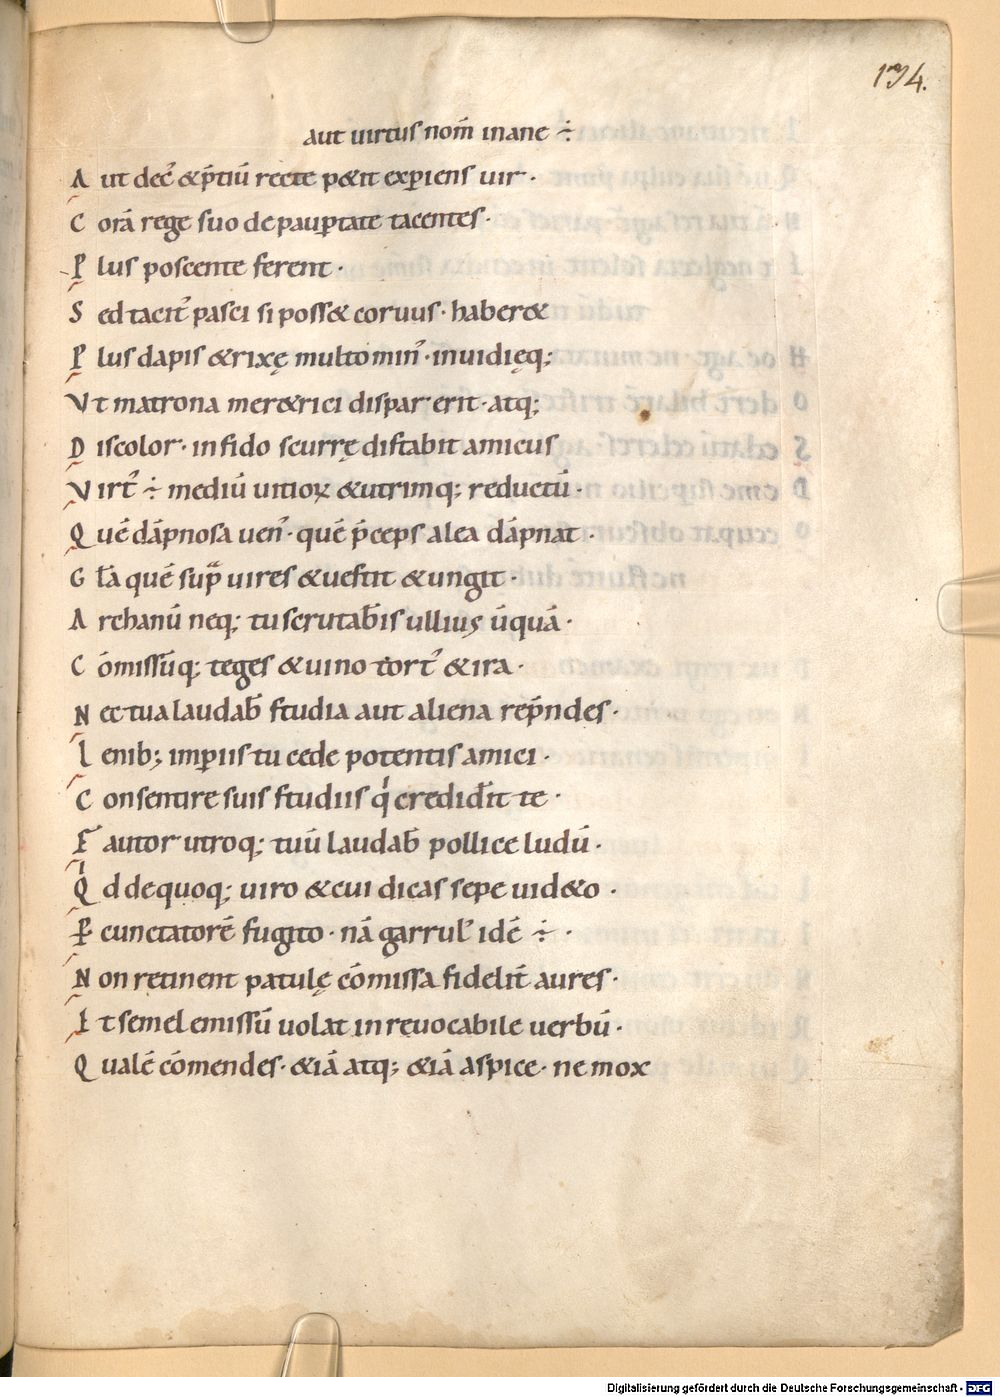 134.
aut uirtus nom̄ inane ÷
Aut dec᷒ &p̄tiū recte p&it exꝑiens uir·
Corā rege suo de pauꝑtate tacentes·
Plus poscente ferent·
Sed tacit᷒ pasci si poss& coruus· haber&
Plus dapis &rixę multo min᷒· inuidięq;
Vt matrona mer&rici dispar erit· atq;
Discolor· infido scurrę distabit amicus
Virt᷒ ÷ mediū uitioꝝ &utrimq; reductū·
Quē dāpnosa uen᷒· quē p̄ceps alea dāpnat·
Gl̄a quē supͣ uires &uestit &ungit·
Archanū neq; tu scrutab̄is ullius ūquā·
Cōmissūq; teges &uino tort᷒ &ira·
Nec tua laudab̄ studia aut aliena rep̄ndes·
Lenib; imꝑiis tu cede potentis amici·
Consentire suis studiis qͥ credid̄it te·
Fautor utroq; tuū laudab̄ pollice ludū·
Qͥd de quoq; uiro &cui dicas sepe uid&o·
Ꝑcunctatorē fugito· nā garrul᷒ idē ÷·
Non retinent patulę cōmissa fidelit̄ aures·
Et semel emissū uolat inreuocabile uerbū·
Qualē cōmendes· &iā atq; &iā aspice· ne mox
Digitalisierung gefördert durch die Deutsche Forschungsgemeinschaft - DFG